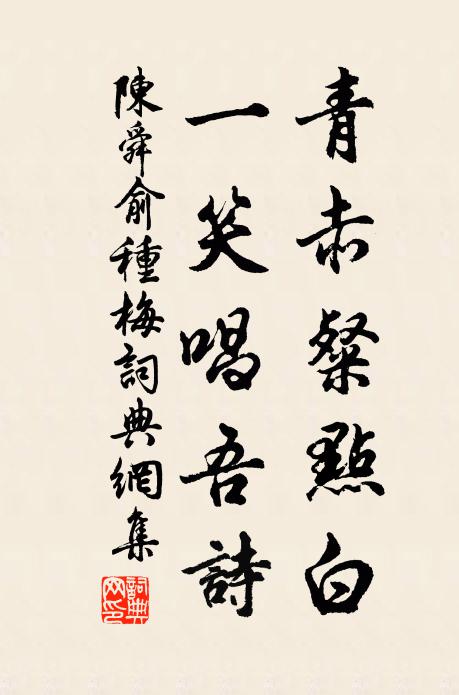 青赤粲點白
一笑唱吾詩
陳舜俞種梅詞典網集
詞典网印